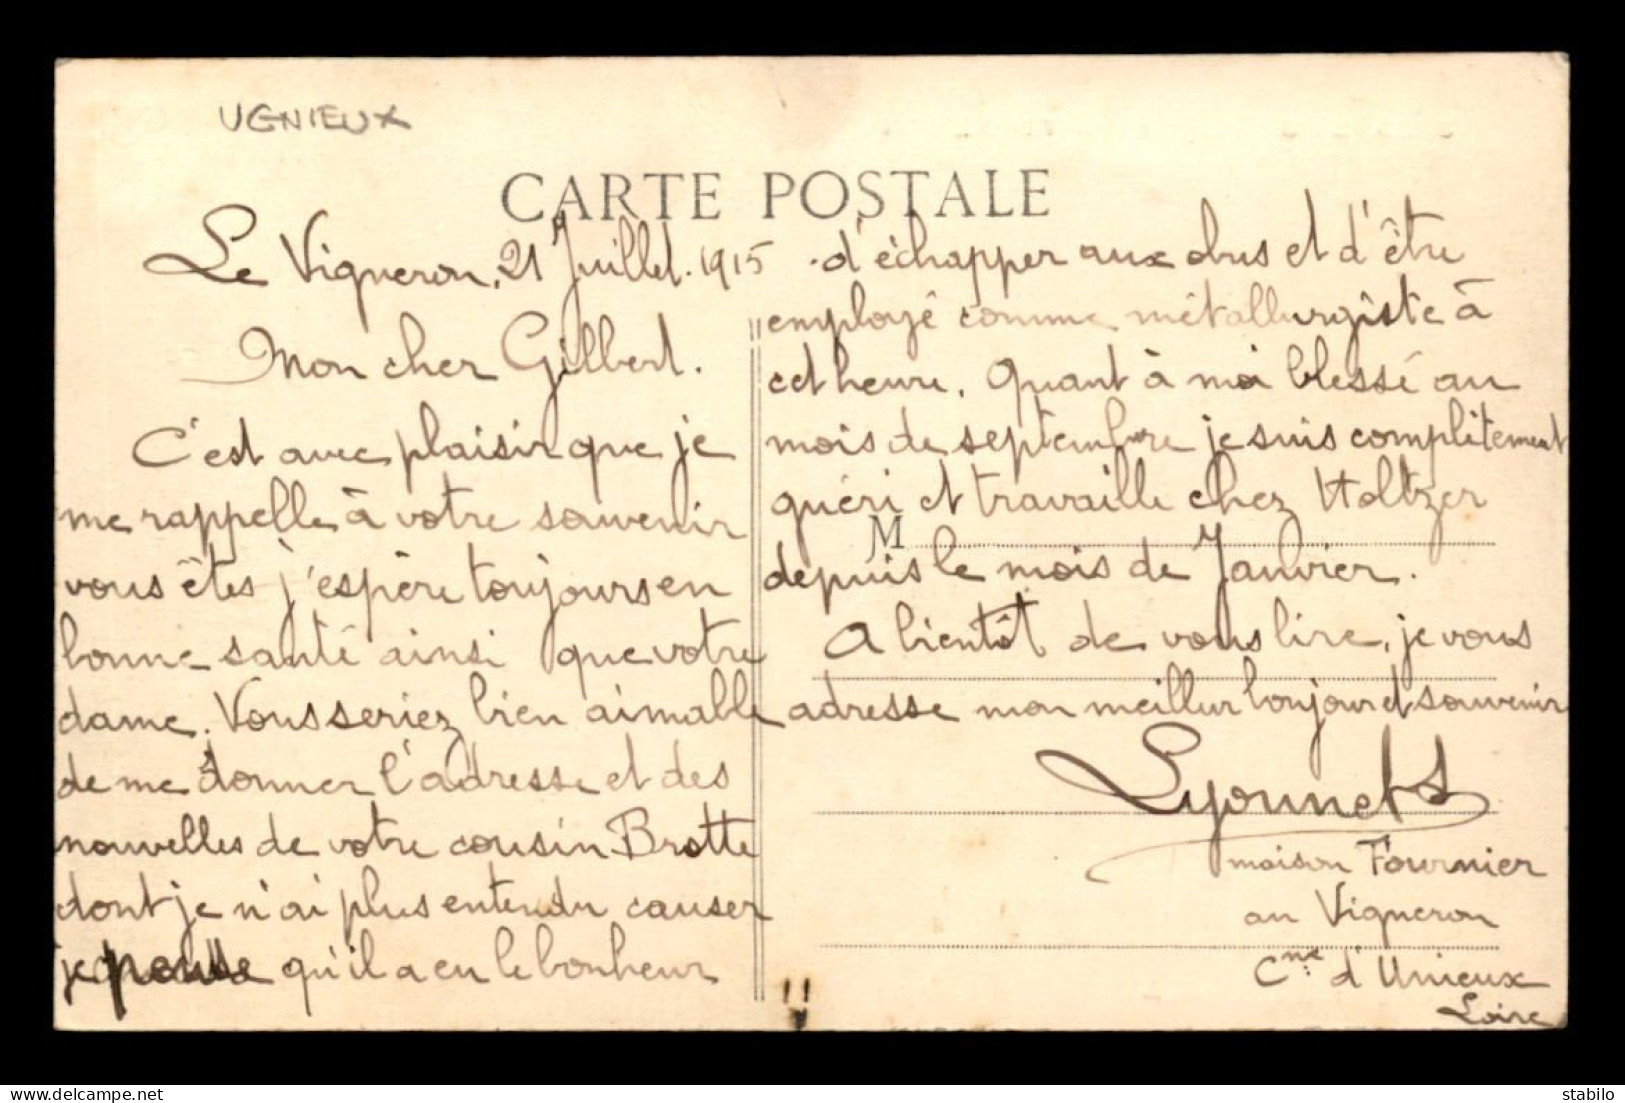 UGNIEUX
CARTE POSTALE
Le Vigneron, 21 Juillet. 1915
Mon cher Gilbert.
C'est avec plaisir que je
me rappelle à votre souvenir
vous êtes j'espère toujours en
bonne santé ainsi que votre
dame. Vous seriez bien aimable
de me donner l'adresse et des
nouvelles de votre cousin Brotte
dont je n'ai plus entendu causer
je pense qu'il a eu le bonheur
d'échapper aux obus et d'être
employé comme métallurgiste à
cet heure. Quant à moi blessé au
mois de septembre je suis complètement
guéri et travaille chez Holtzer
M
depuis le mois de Janvier.
A bientôt de vous lire, je vous
adresse mon meillur bonjour et souvenir
Lyonnet
maison Fournier
au Vigneron
Cne d'Unieux
Loire
delcampe.net
stabilo